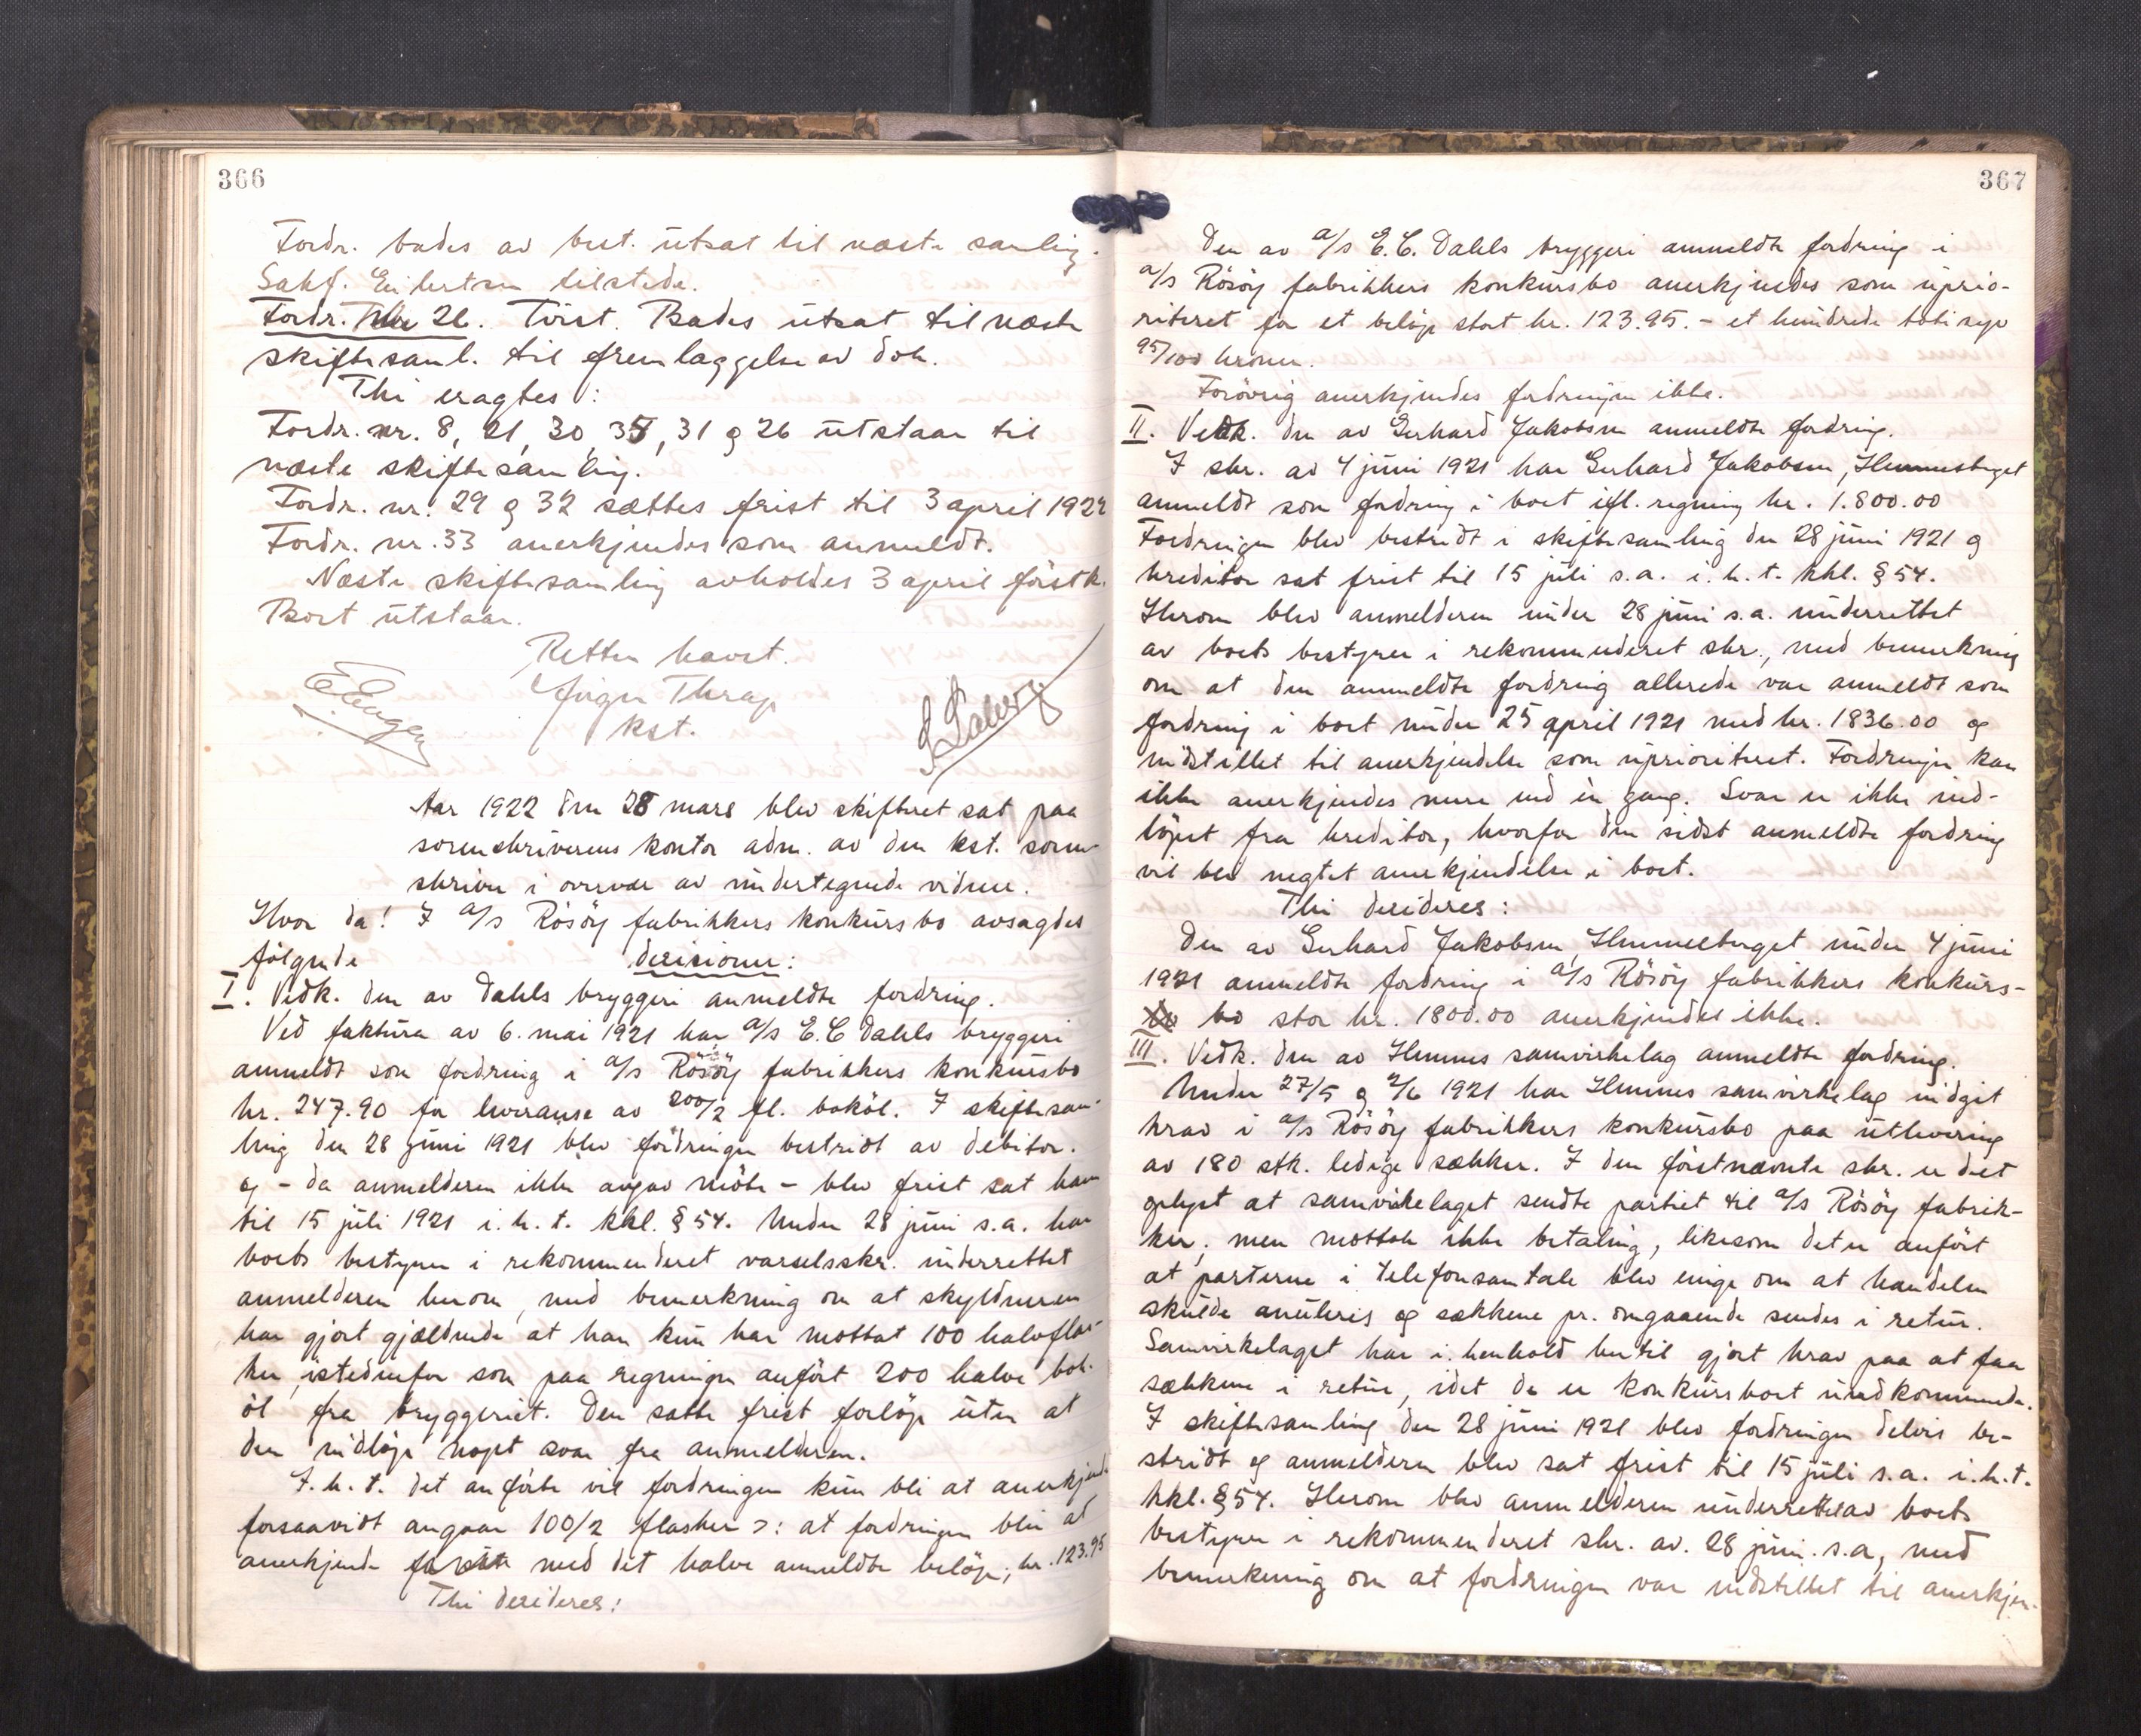 366
Fordr. bades av best. utsat til næste samling.
Sakf. Eilertsen tilstede.
Fordr. Nr 26. Tvist. Bades utsat til næste
skiftesaml. til fremlæggelse av dok.
Thi eragtes:
Fordr. nr. 8, 21, 30, 35, 31 g 26 utstaar til
næste skiftesamling.
Fordr. nr. 29 g 32 sættes frist til 3 april 1922
Fordr. nr. 33 anerkjendes som anmeldt.
Næste skiftesamling avholdes 3 april førstk.
Boet utstaar.
Retten hævet.
Thrap
kst.
Aar 1922 den 28 mars blev skifteret sat paa
sorenskriverens kontor adm. av den kst. soren-
skriver i overvær av undertegnede vidner.
Hvor da! I a/s Røsøy fabrikkers konkursbo avsagdes
følgende decisioner:
I. Vedk. den av Dahls bryggeri anmeldte fordring.
Ved faktura av 6. mai 1921 har a/s E.C Dahls bryggeri
anmeldt som fordring i a/s Røsøy fabrikkers konkursbo
kr. 247.90 for leveranse av 200/2 fl. bokøl. I skiftesam-
ling den 28 juni 1921 blev fordringen bestridt av debitor.
og - da anmelderen ikke avgav møte - blev frist sat ham
til 15 juli 1921 i. h. t. kkl. § 54. Under 28 juni s.a. har
boets bestyrer i rekommenderet varselsskr. underrettet
anmelderen herom, med bemerkning om at skyldneren
har gjort gjældende at han kun har mottat 100 halvflas-
ker, istedenfor som paa regningen anført 200 halve bok-
øl fra bryggeriet. Den satte frist forløp uten at
der indløp noget svar fra anmelderen.
I. h. t. det anførte vil fordringen kun bli at anerkjende
forsaavidt angaar 100/2 flasker ɔ: at fordringen blir at
anerkjende med det halve anmeldte beløp, kr. 123.95
Thi decideres:
367
Den av a/s E.C. Dahls bryggeri anmeldte fordring i
a/s Røsøy fabrikkers konkursbo anerkjendes som uprio-
riteret for et beløp stort kr. 123.95. - et hundrede toti
95/100 kroner.
Forøvrig anerkjendes fordringen ikke.
II. Vedk. den av Gerhard Jakobsen anmeldte fordring.
I skr. av 4 juni 1921 har Gerhard Jakobsen, Hemnesberget
anmeldt som fordring i boet ifl. regning kr. 1.800.00
Fordringen blev bestridt i skiftesamling den 28 juni 1921 g
kreditor sat frist til 15 juli s.a. i. h. t. kkl. § 54.
Herom blev anmelderen under 28 juni s.a. underrettet
av boets bestyrer i rekommenderet skr., med bemerkning
om at den anmeldte fordring allerede var anmeldt som
fordring i boet under 25 april 1921 med kr. 1836.00 og
indstillet til anerkjendelse som uprioriteret. Fordringen kan
ikke anerkjendes mere end en gang. Svar er ikke ind-
løpet fra kreditor, hvorfor den sidst anmeldte fordring
vil bli negtet anerkjendelse i boet.
Thi decideres:
Den av Gerhard Jakobsen, Hemnesberget under 4 juni
1921 anmeldte fordring i a/s Røsøy fabrikkers konkurs-
bo stor kr. 1800.00 anerkjendes ikke.
III. Vedk. den av Hemnes samvirkelag anmeldte fordring.
Under 27/5 g 2/6 1921 har Hemnes samvirkelag indgit
krav i a/s Røsøy fabrikkers konkursbo paa utlevering
av 180 stk. ledige sækker. I den førstnævnte skr. er det
oplyst at samvirkelaget sendte partiet til a/s Røsøy fabrik-
ker, men mottok ikke betaling, likesom det er anført
at parterne i telefonsamtale blev enige om at handelen
skulde anuleres og sækkene pr. omgaaende sendes i retur.
Samvirkelaget har i henhold hertil gjort krav paa at faa
sækkene i retur, idet da er konkursboet uvedkommende.
I skiftesamling den 28 juni 1921 blev fordringen delvis be-
stridt og anmelderen blev sat frist til 15 juli s.a. i.h.t.
kkl. § 54. Herom blev anmelderen underrettet av boets
bestyrer i rekommenderet skr. av. 28 juni. s.a, med
bemerkning om at fordringen var indstillet til anerkjen-